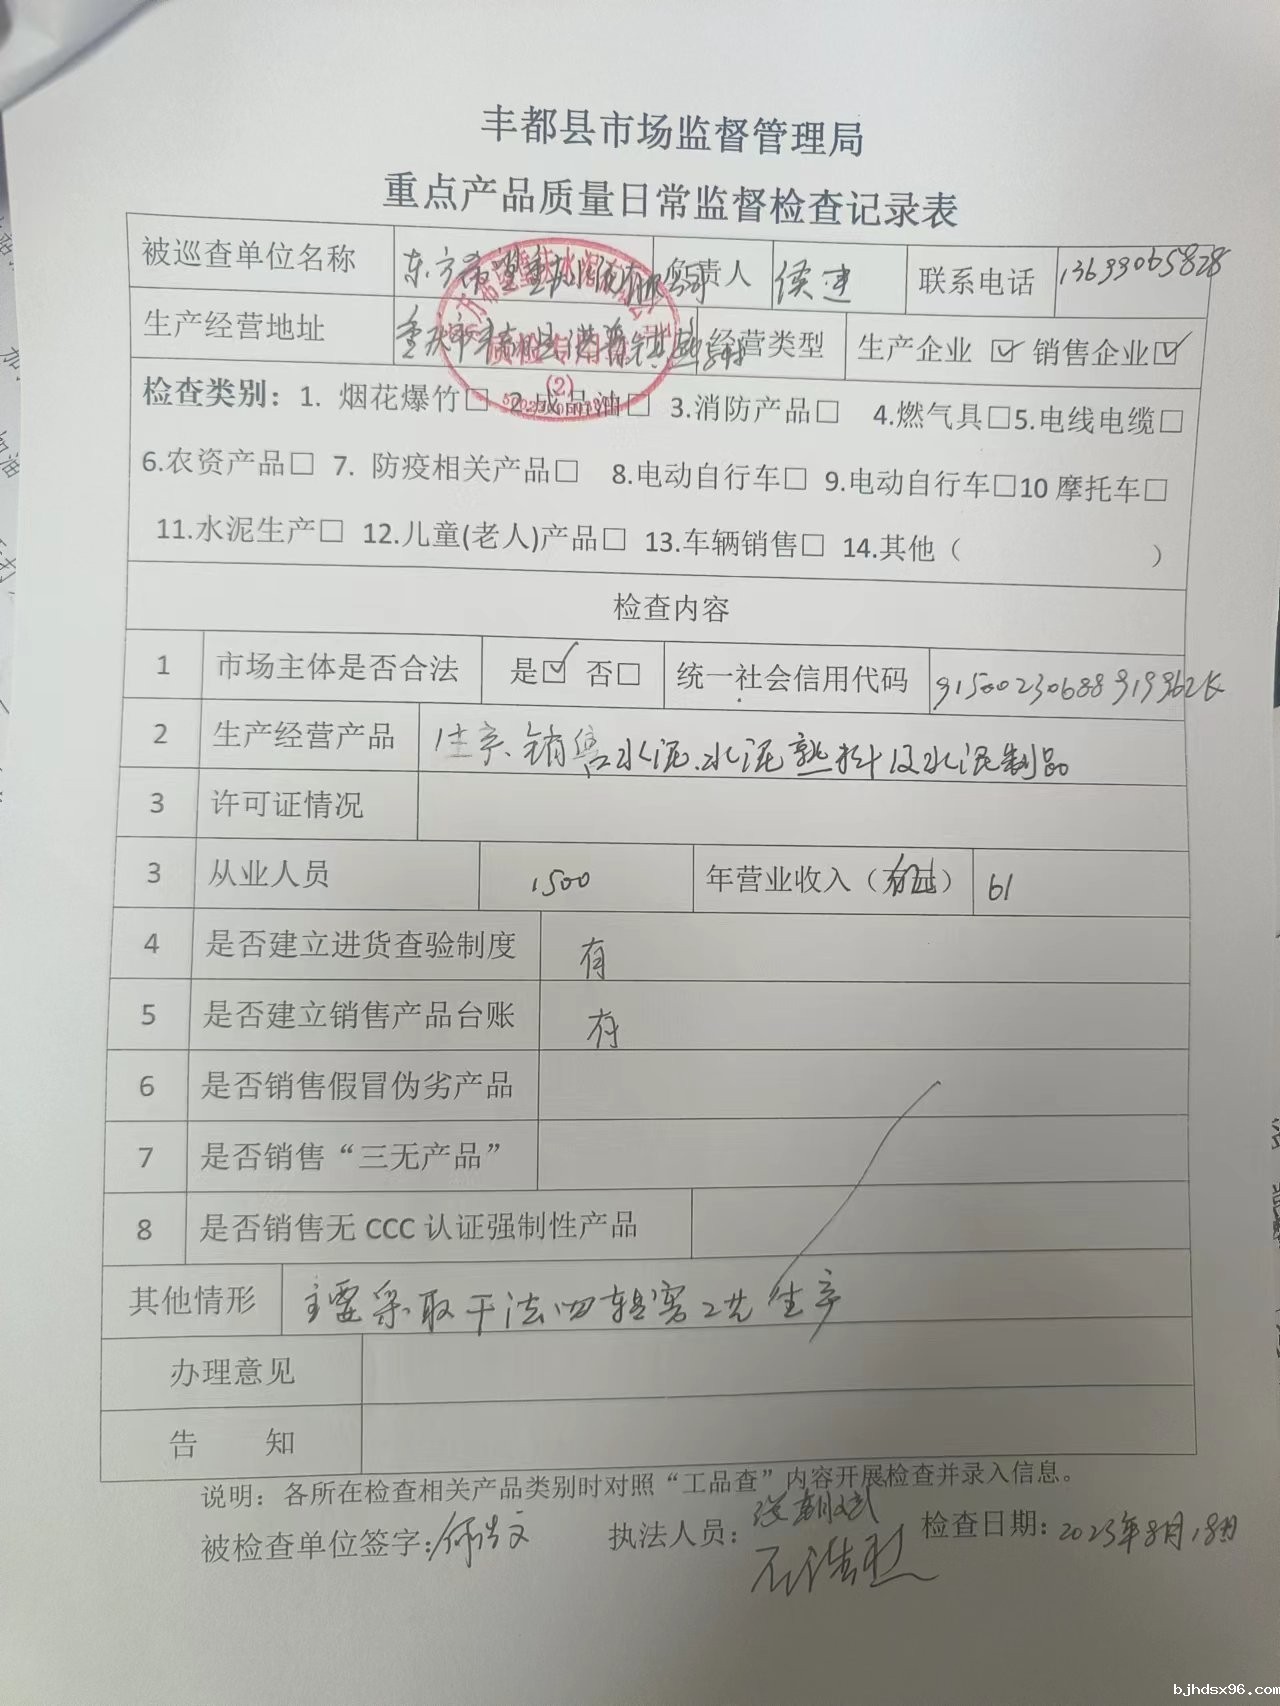 丰都县市场监督管理局
重点产品质量日常监督检查记录表
被巡查单位名称 东方希望重庆水泥有限公司 负责人 侯建 联系电话 13633065828
生产经营地址 重庆市丰都县 经营类型 生产企业☑ 销售企业☑
检查类别：1. 烟花爆竹□ 2.成品油□ 3.消防产品□ 4.燃气具□5.电线电缆□
6.农资产品□ 7. 防疫相关产品□ 8.电动自行车□ 9.电动自行车□10 摩托车□
11.水泥生产□ 12.儿童(老人)产品□ 13.车辆销售□ 14.其他（ ）
检查内容
1 市场主体是否合法 是☑ 否□ 统一社会信用代码 91500230688919962K
2 生产经营产品 生产、销售水泥、水泥熟料及水泥制品
3 许可证情况
3 从业人员 1500 年营业收入（ ） 61
4 是否建立进货查验制度 有
5 是否建立销售产品台账 有
6 是否销售假冒伪劣产品
7 是否销售“三无产品”
8 是否销售无 CCC 认证强制性产品
其他情形 主要采取干法回转窑工艺生产
办理意见
告 知
说明：各所在检查相关产品类别时对照“工品查”内容开展检查并录入信息。
被检查单位签字： 执法人员： 检查日期：2023年8月18日
质检专用章
(2)
bjhdsx96.com